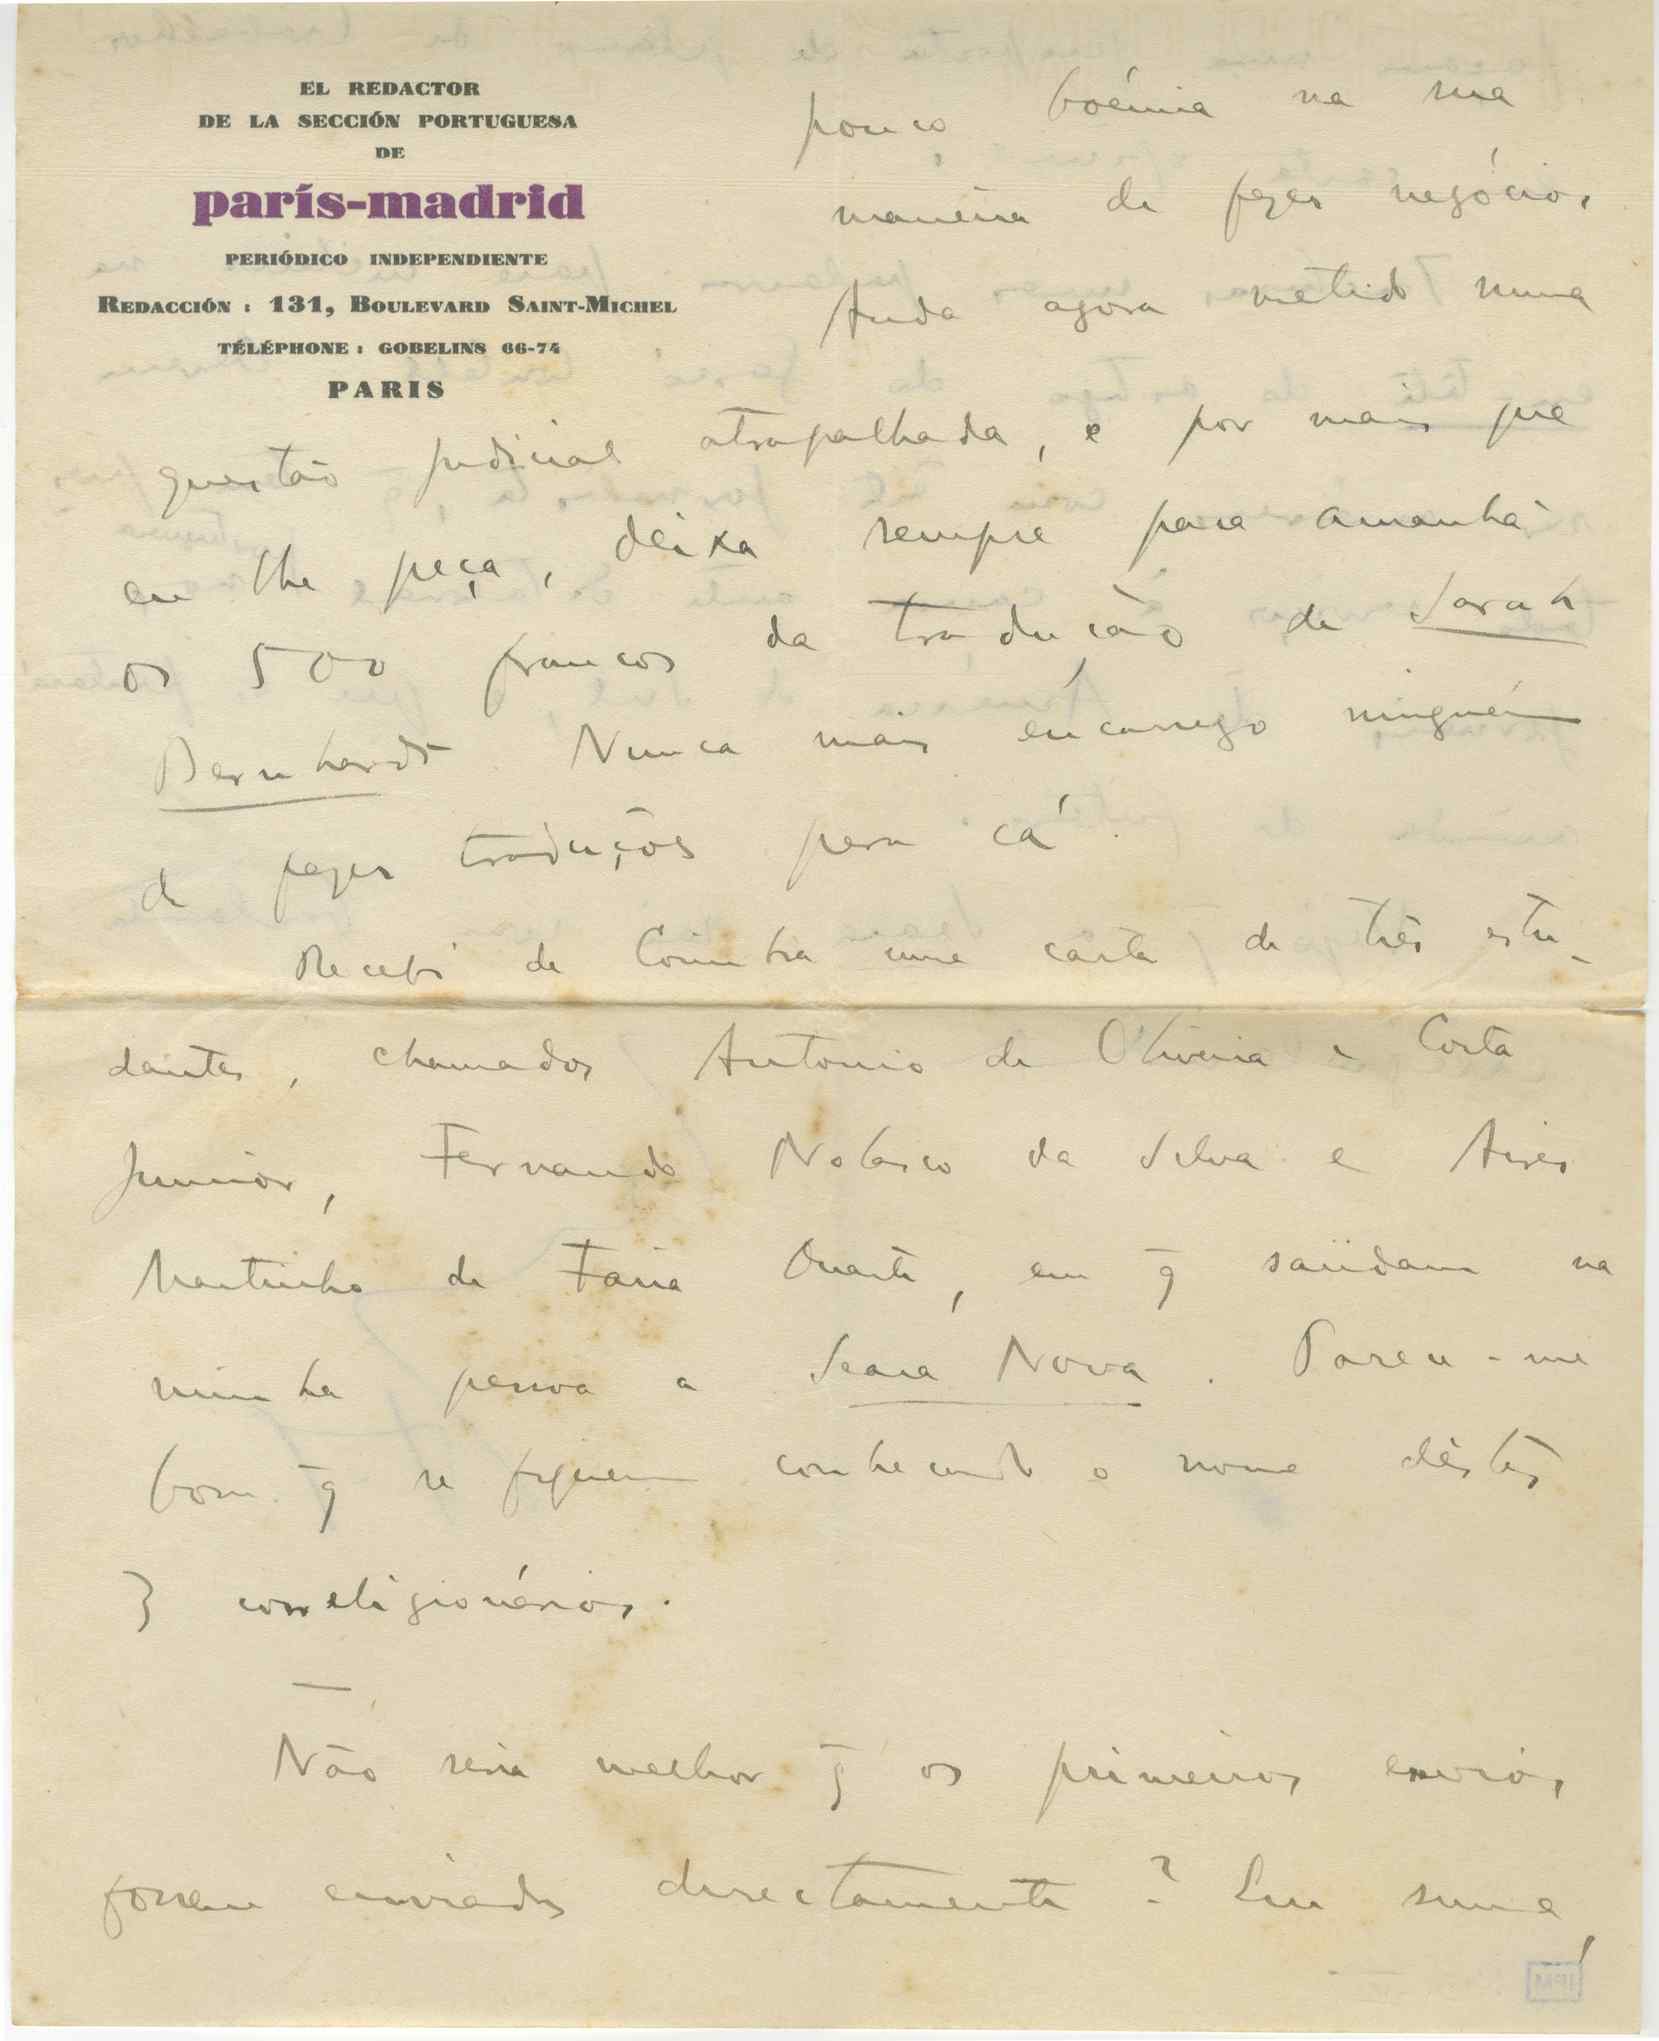 EL REDACTOR
DE LA SECCIÓN PORTUGUESA
DE
parís-madrid
PERIÓDICO INDEPENDIENTE
REDACCIÓN : 131, BOULEVARD SAINT-MICHEL
TÉLÉPHONE : GOBELINS 66-74
PARIS
pouco boémia na sua
maneira de fazer negócios.
Anda agora metido numa
questão judicial atrapalhada, e por mais que
eu lhe peça, deixa sempre para amanhã
os 500 francos da tradução de Sarah
Bernhardt. Nunca mais encarrego ninguém
de fazer traduções para cá.
Recebi de Coimbra uma carta de três estu-
dantes, chamados Antonio de Oliveira e Costa
Junior, Fernando Nolasco da Silva e Aires
Martinho de Faria Duarte, em q̄ saüdam na
minha pessoa a Seara Nova. Parece-me
bom q̄ se fiquem conhecendo o nome dêstes
3 correligionários.
—
Não seria melhor q̄ os primeiros envios
fossem enviados directamente? Em suma,